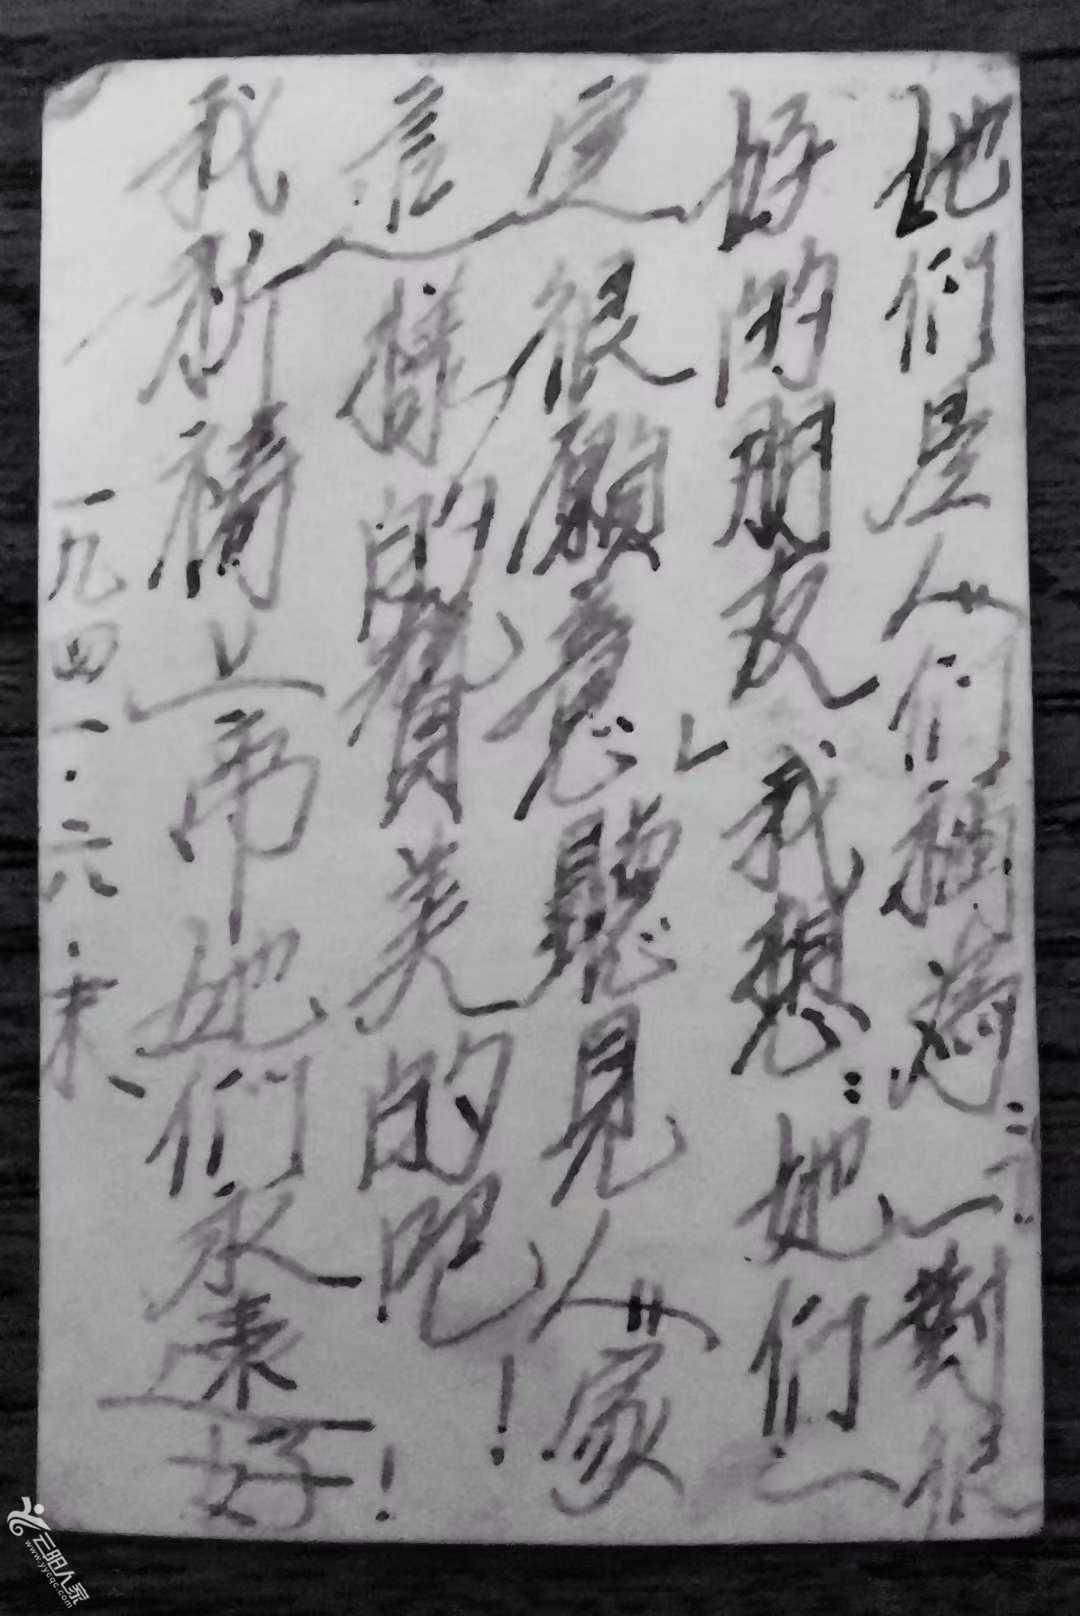 她們是人們稱為：「一對很
好的朋友」我想：她們一
定很願意聽見人家
這樣的贊美的吧！
我祈禱上帝她們永遠好！
一九四一.六.末、
云阳人家
www.yycqc.com